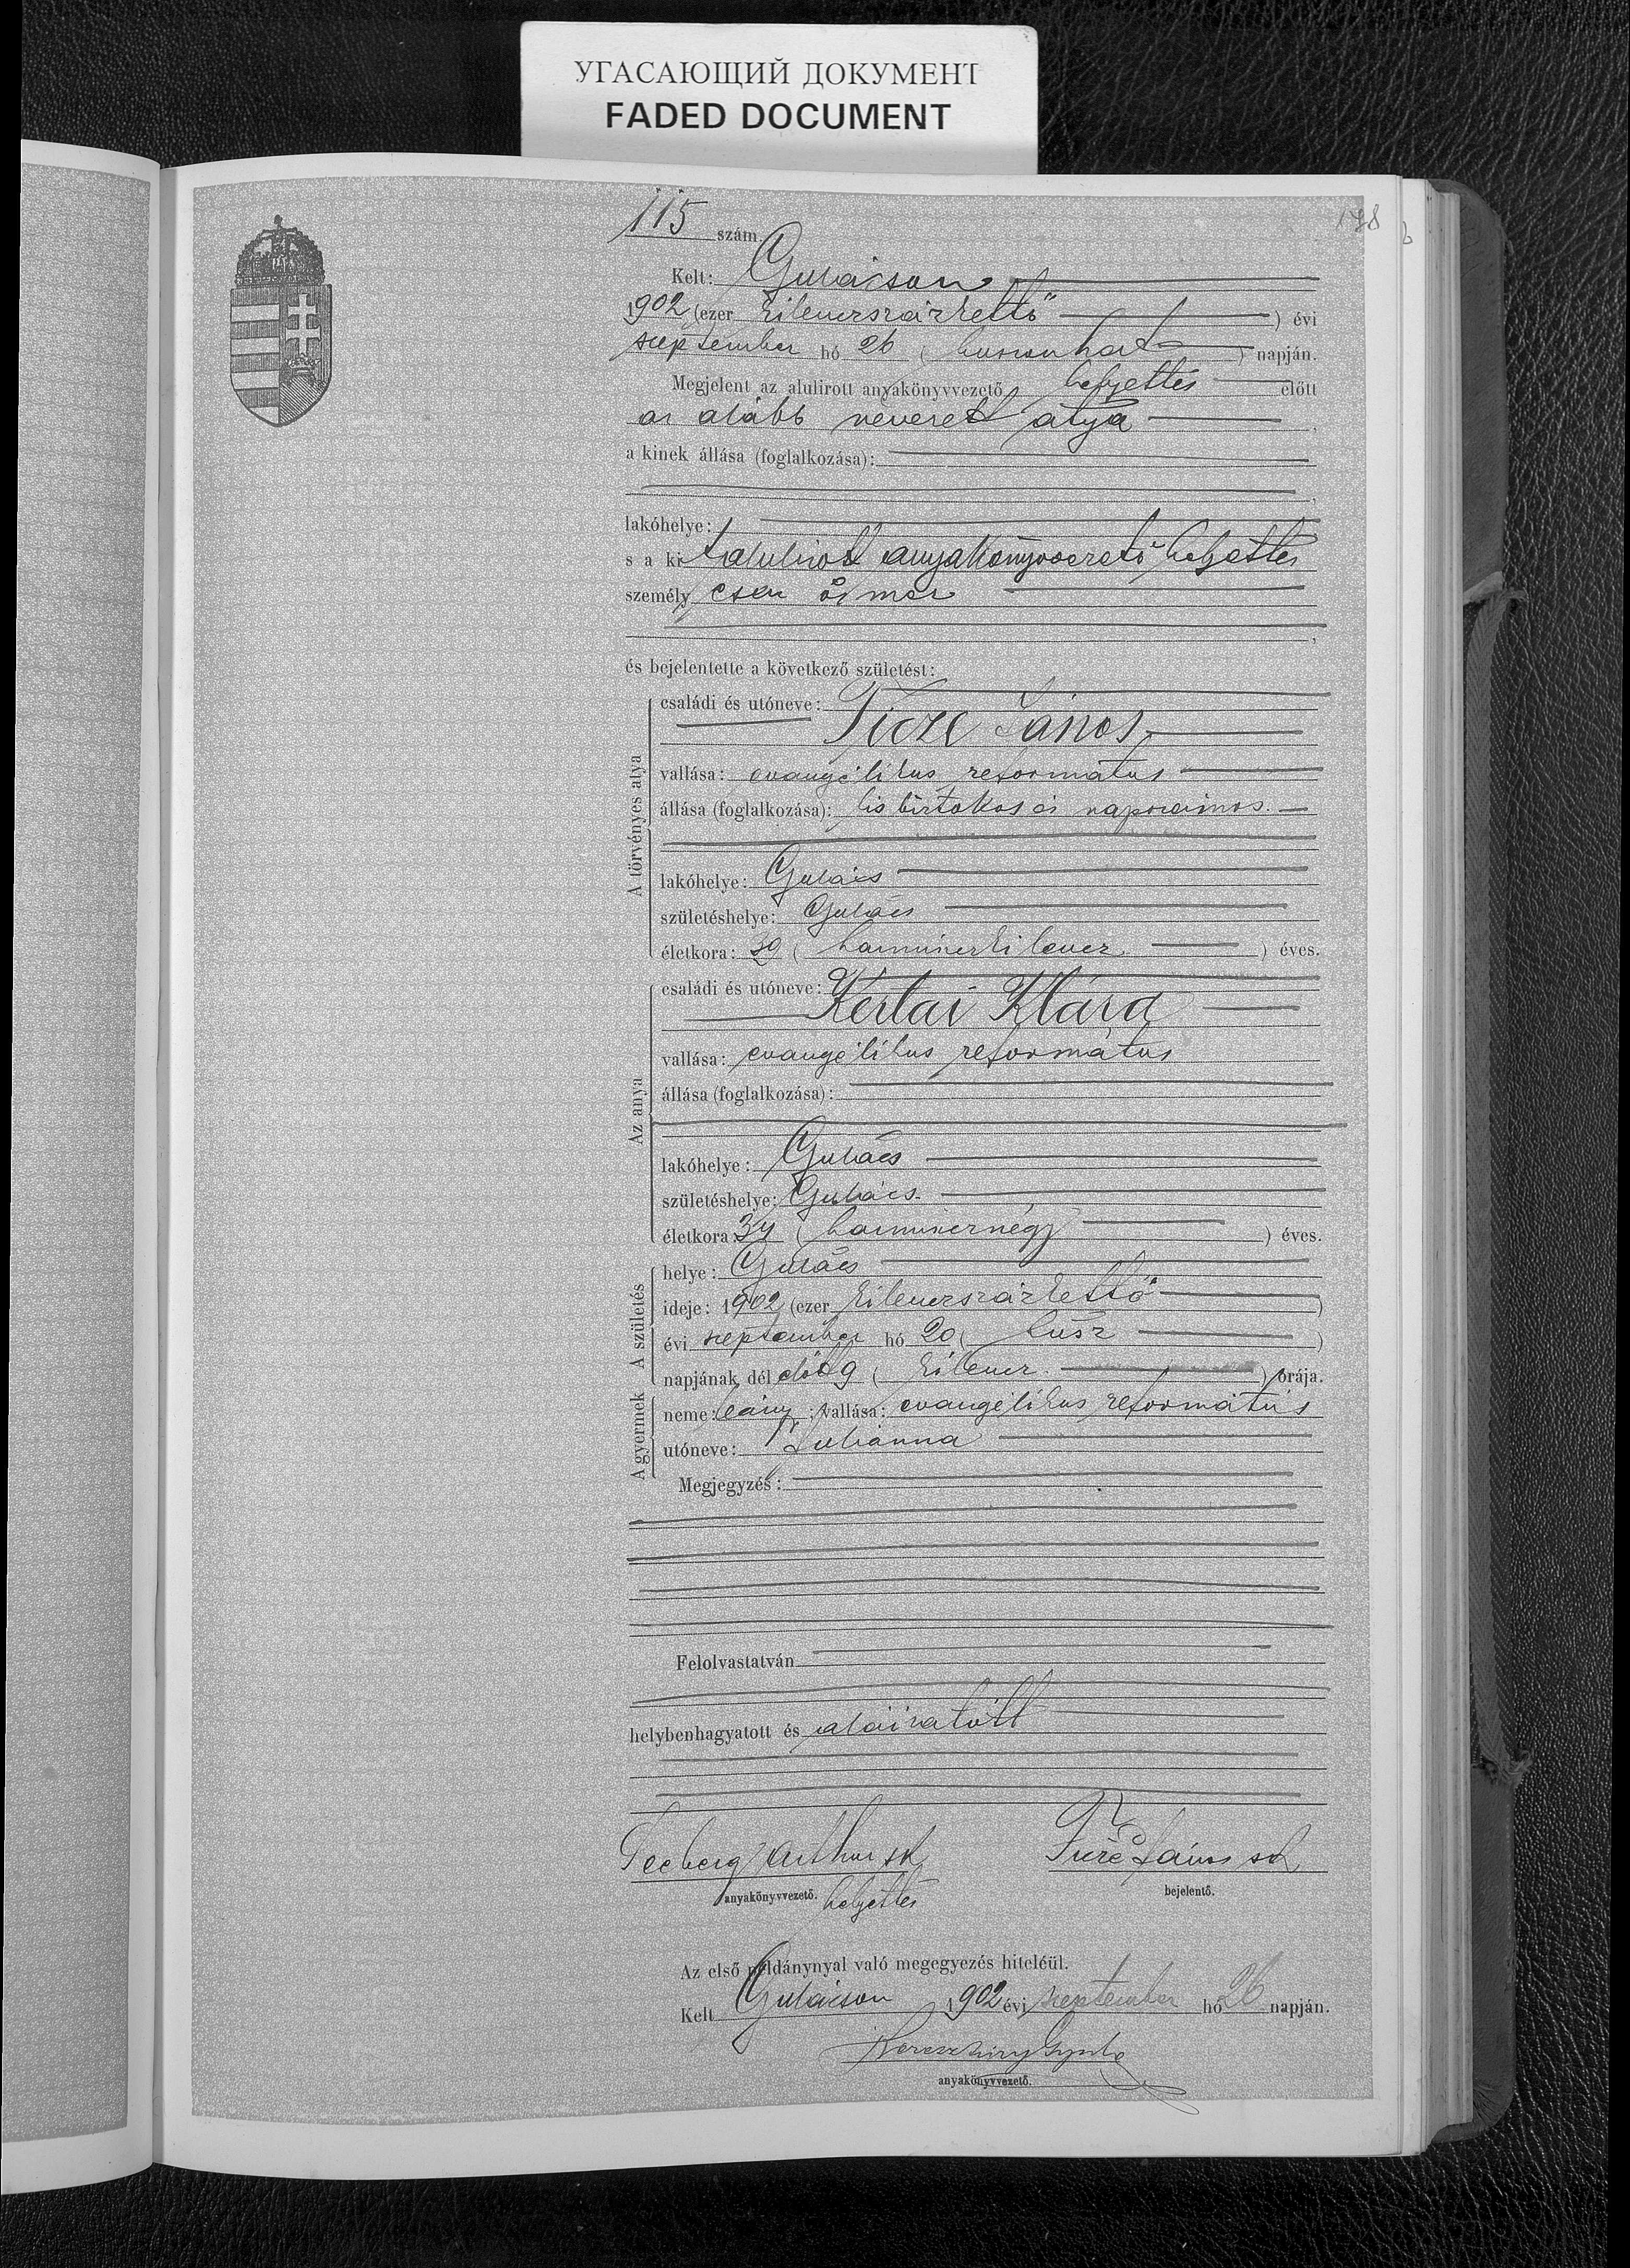 УГАСАЮЩИЙ ДОКУМЕНТ
FADED DOCUMENT
115 szám
Kelt: Gulácson
1902 (ezer kilenczszázkettő ) évi
szeptember hó 26 ( huszonhat ) napján.
Megjelent az alulirott anyakönyvvezető helyettes előtt
az alább nevezett atya
a kinek állása (foglalkozása):
lakóhelye:
s a kit alulirott anyakönyvvezető helyettes
személyesen ösmer
és bejelentette a következő születést:
A törvényes atya
családi és utóneve:
János
vallása: evangélikus református
állása (foglalkozása): kisbirtokos és napszámos.
lakóhelye: Gulács
születéshelye: Gulács
életkora: 39 ( harminczkilencz ) éves.
Az anya
családi és utóneve:
Kertai Klára
vallása: evangélikus református
állása (foglalkozása):
lakóhelye: Gulács
születéshelye: Gulács
életkora: 34 ( harmincznégy ) éves.
A születés
helye: Gulács
ideje: 1902 (ezer kilenczszázkettő )
évi szeptember hó 20 ( húsz )
napjának dél előtt 9 ( kilencz ) órája.
A gyermek
neme: leány; vallása: evangélikus református
utóneve: Juliánna
Megjegyzés:
Felolvastatván
helybenhagyatott és aláiratott
Seeberg Arthur sk János sk
anyakönyvvezető. helyettes bejelentő.
Az első példánynyal való megegyezés hiteléül.
Kelt Gulácson 1902 évi szeptember hó 26 napján.
anyakönyvvezető.